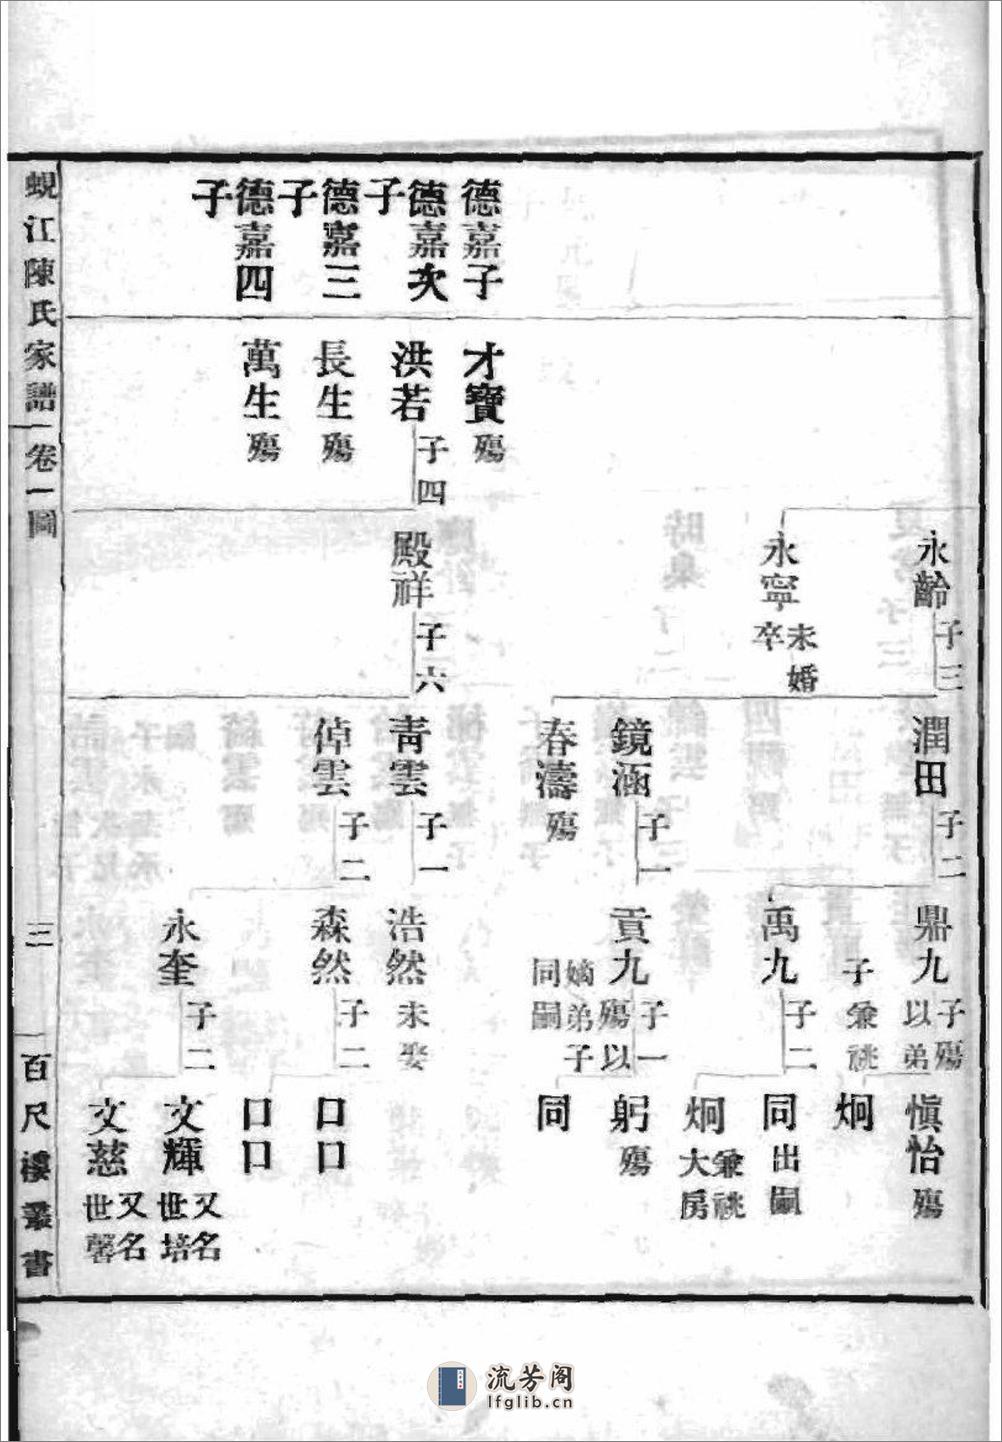 德嘉子
德嘉次
子
德嘉三
子
德嘉四
子
才寶殤
洪若子四
長生殤
萬生殤
永齡子三
永寧未婚
卒
殿祥子六
潤田子二
鏡涵子一
春濤殤
青雲子一
倬雲子二
鼎九子殤
以弟
子兼祧
禹九子二
貢九子一
殤以
嫡弟子
同嗣
浩然未娶
森然子二
永奎子二
慎怡殤
炯
同出嗣
炯兼祧
大房
躬殤
同
口口
口口
文輝又名
世培
文慈又名
世馨
蜆江陳氏家譜
卷一圖
三
百尺樓叢書
流芳阁
lfglib.cn